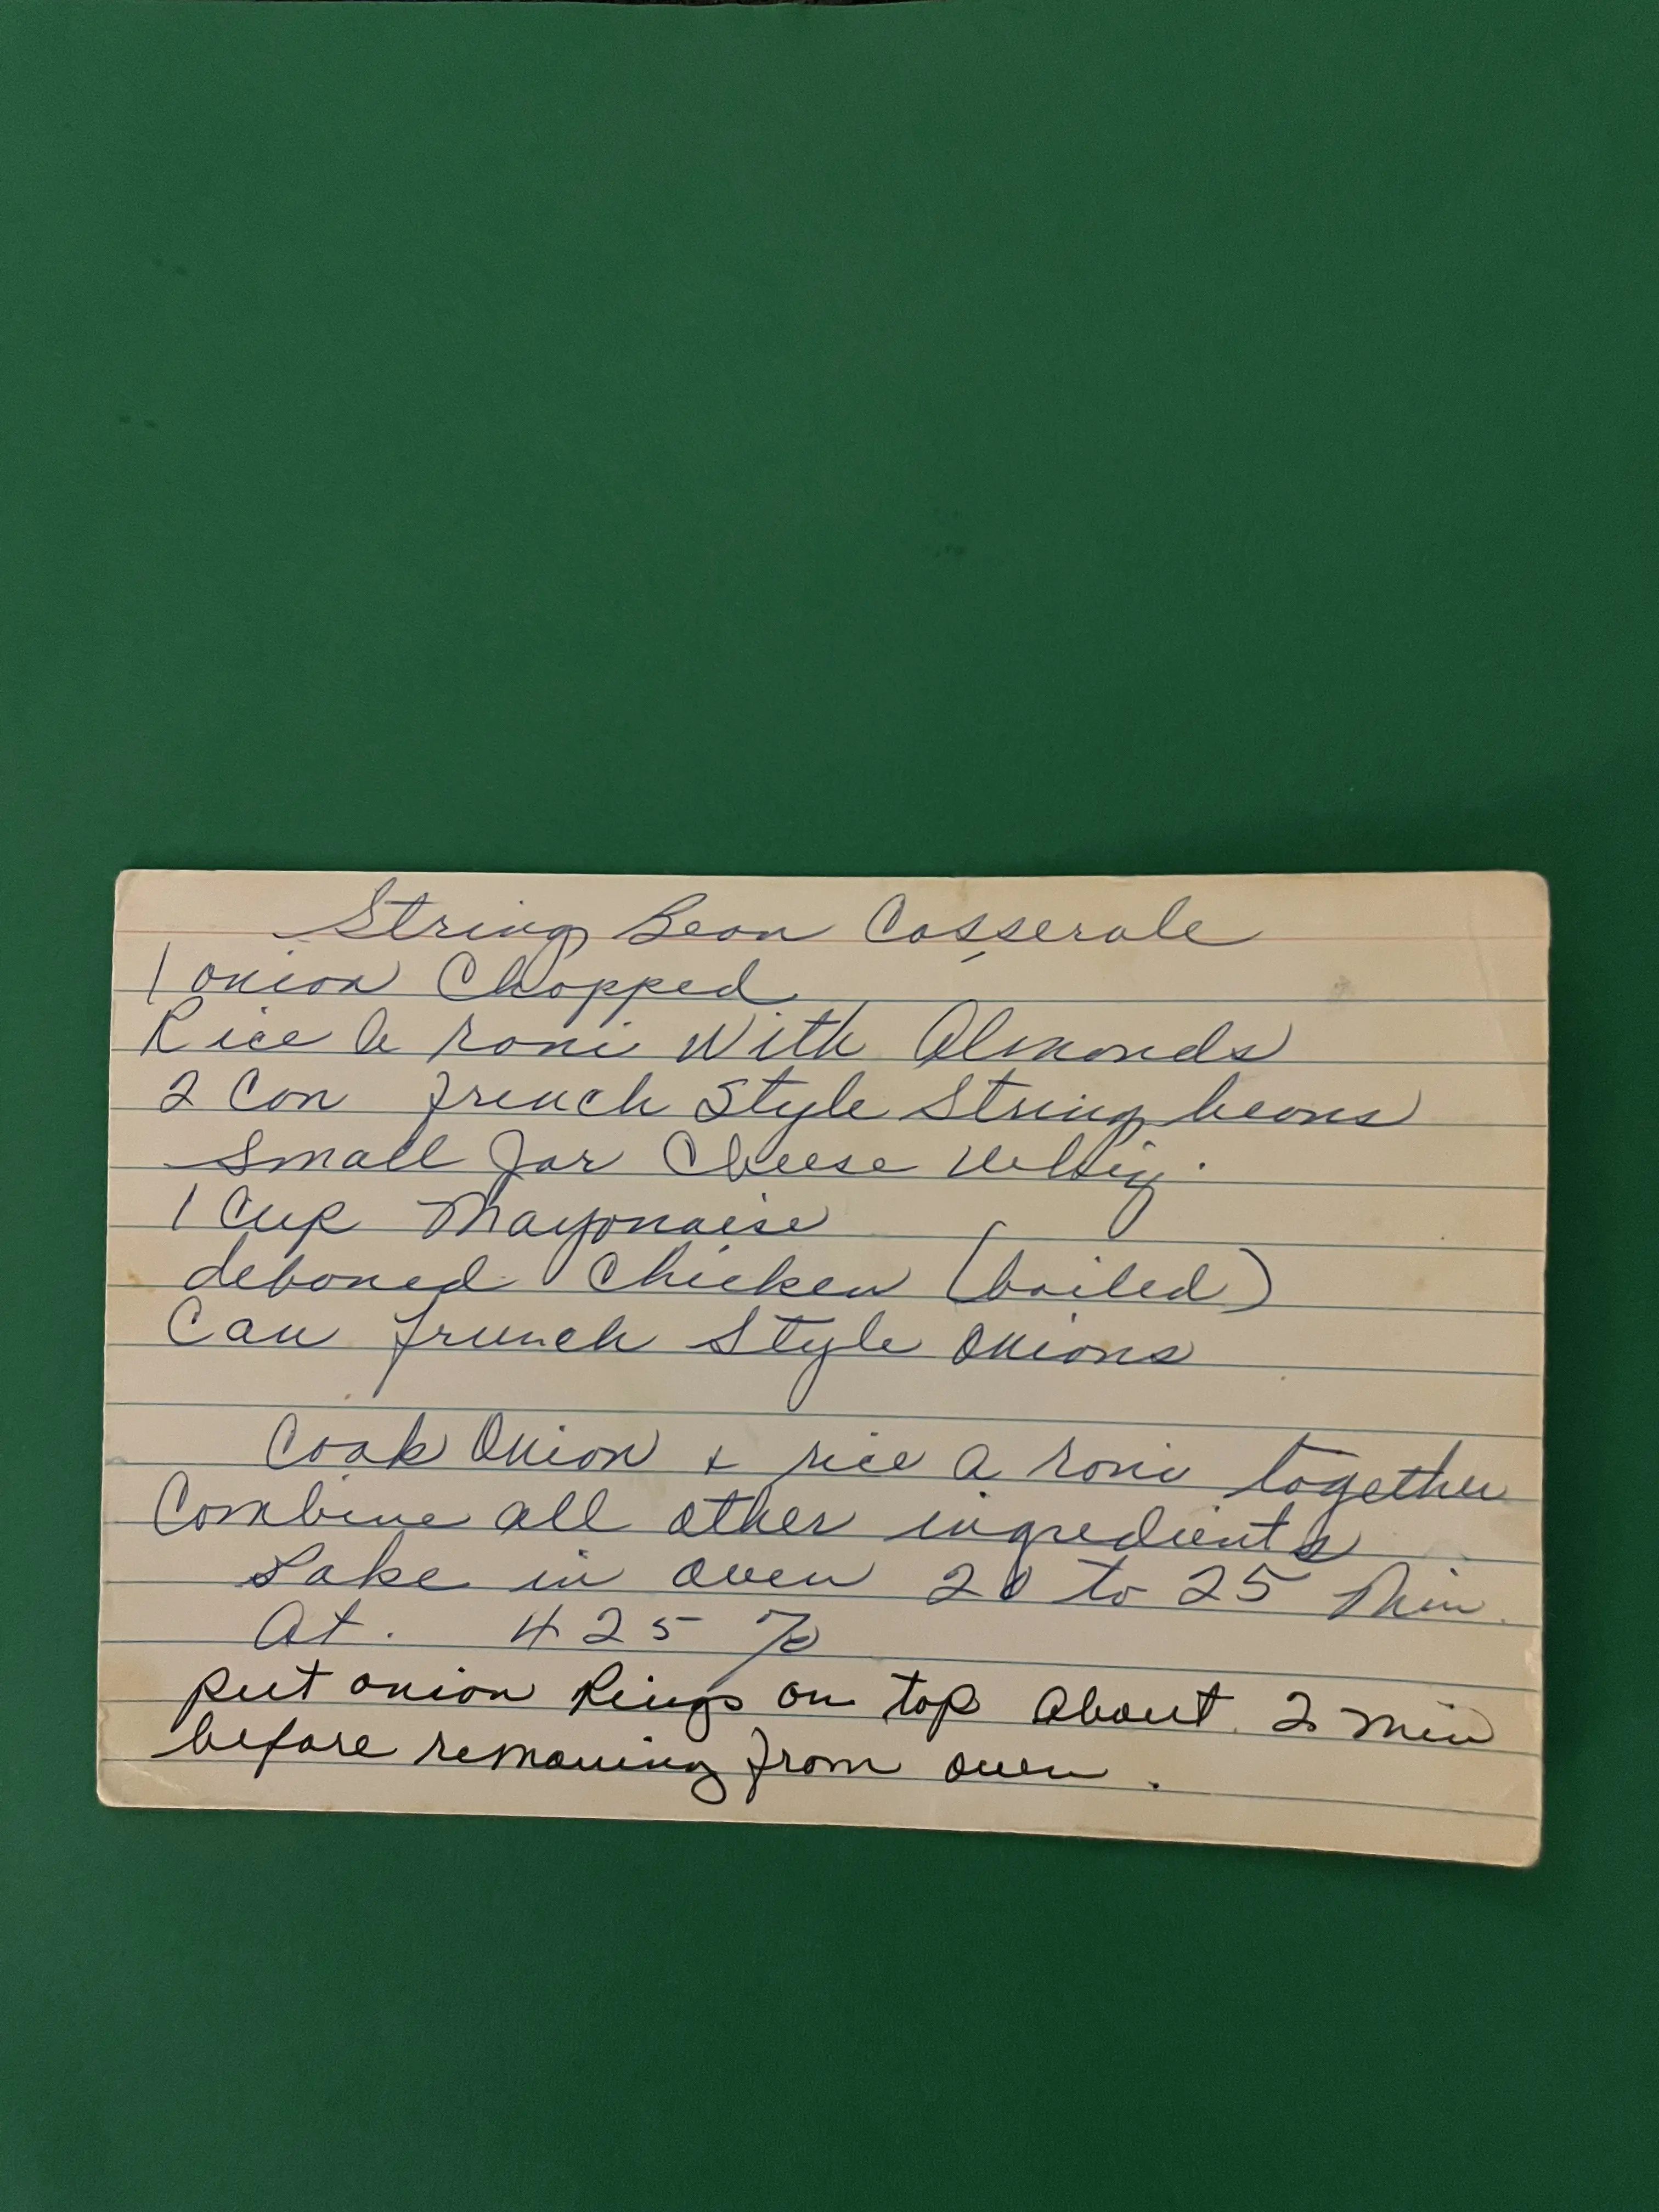 String Bean Casserole
1 onion Chopped
Rice A roni With Almonds
2 Can french Style String beans
Small Jar Cheese Whiz.
1 Cup Mayonaise
deboned Chicken (boiled)
Can french Style Onions
Cook Onion + rice a roni together
Combine all other ingredients
Bake in oven 20 to 25 Min.
At. 425 %
put onion Rings on top About 2 min
before removing from oven.